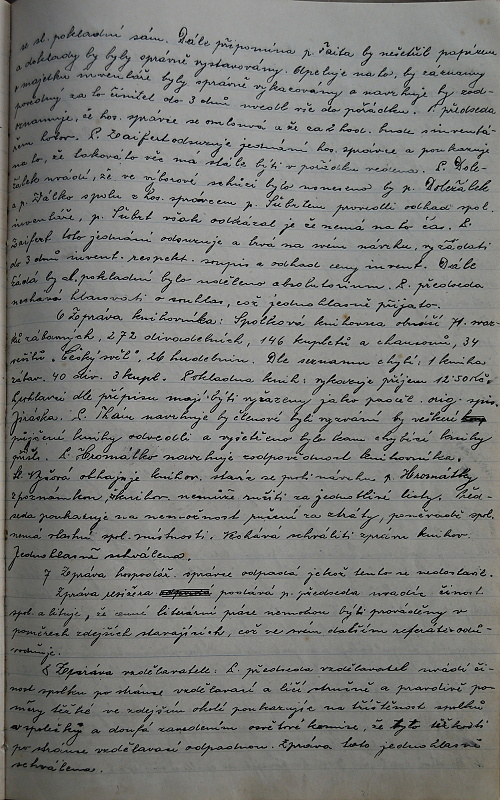 se sl. pokladní sám. Dále připomíná p. Faita by nešetřil papírem
a doklady by byly správně vystavovány. Apeluje na to, by záznamy
o majetku inventář. byly správně vykazovány a navrhuje by zod-
povědný za to činitel do 3 dnů uvedl vše do pořádku. P. předseda
oznamuje, že hos. správce se omlouvá a že za 2 hod. bude s inventá-
řem hotov. P. Zaifert odsuzuje jednání hos. správce a poukazuje
na to, že taková to věc má stále býti v pořádku vedena. P. Dole-
žálek uvádí, že ve výborové schůzi bylo usneseno by p. Doležálek
a p. Válko spolu s hos. správcem p. Šubrtem provedli odhad spol.
inventáře, p. Šubrt však odkázal je že nemá na to čas. P.
Zaifert toto jednání odsuzuje a trvá na svém návrhu, vyžádati
do 3 dnů invent. respekt. soupis a odhad ceny invent. Dále
žádá by sl. pokladní bylo uděleno absolutorium. P. předseda
nechává hlasovati o souhlas, což jednohlasně přijato.
6 Zpráva knihovníka: Spolková knihovna obnáší 71 svaz-
ků zábavných, 272 divadelních, 146 kupletů a chansonů, 34
sešitů "Český svět", 26 hudebnin. Dle seznamu chybí: 1 kniha
zábav. 40 div. 3 kupl. Pokladna knih: vykazuje příjem 12·50 Kč.
dle přípisu mají býti vyřazeny jako orig. spis.
Jiráska. P. navrhuje by členové byli vyzváni by veškeré
půjčené knihy odvedli a vyšetřeno bylo kam chybící knihy
přišly. P. Hromátko navrhuje zodpovědnost knihovníka.
Sl. obhajuje knihov. staví se proti návrhu p. Hromátky
s poznámkou, knihov. nemůže ručiti za jednotlivé listy. Před-
seda poukazuje na nemožnost ručení za ztráty, poněvadž spol.
nemá vlastní spol. místnosti. schváliti zprávu knihov.
Jednohlasně schválena.
7 Zpráva hospodář. správce odpadá jelikož tento se nedostavil.
Zprávu podává p. předseda uvádí činnost
spol. a lituje, že cenné literární práce nemohou býti prováděny v
poměrech zdejších stávajících, což ve svém dalším referátě odů-
vodňuje.
8 Zpráva vzdělavatele: P. předseda vzdělavatel uvádí či-
nost spolku po stránce vzdělávací a líčí stručně a pravdivě po-
měry těžké ve zdejším okolí poukazuje na tříštěnost spolků
a společky a doufá zavedením osvětové komise, že tyto těžkosti
po stránce vzdělávací odpadnou. Zpráva tato jednohlasně
schválena.